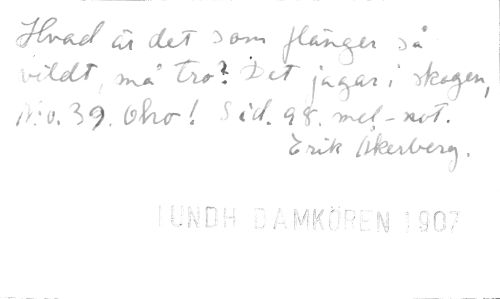 Hvad är det som flänger så
vildt, må tro? Det jagar i skogen,
N:o. 39. Oho! Sid. 98. mel-not.
Erik Åkerberg.
LUNDH DAMKÖREN 1907